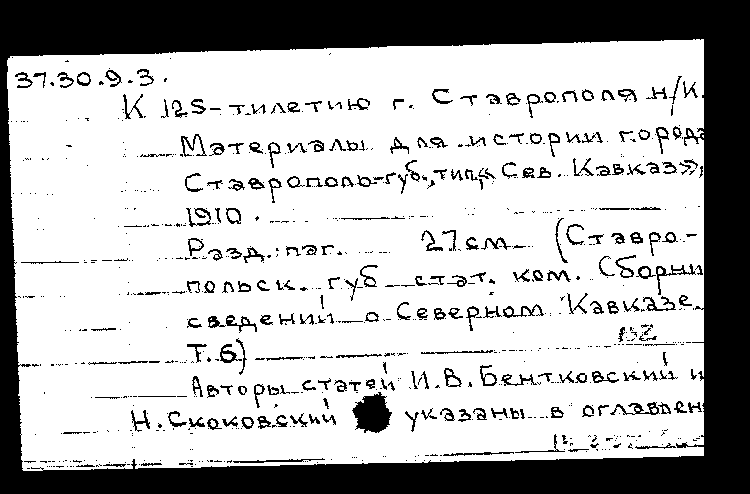 37.30.9.3.
К 125-тилетию г. Ставрополя н/К.
Материалы для истории города
Ставрополь-губ., тип. „Сев. Кавказ",
1910.
Разд. паг. 27 см (Ставро-
польск. губ стат. ком. Сборни
сведений о Северном Кавказе.
Т. 6)
Авторы статей И.В. Бентковский и
Н. Скоковский указаны в оглавлен